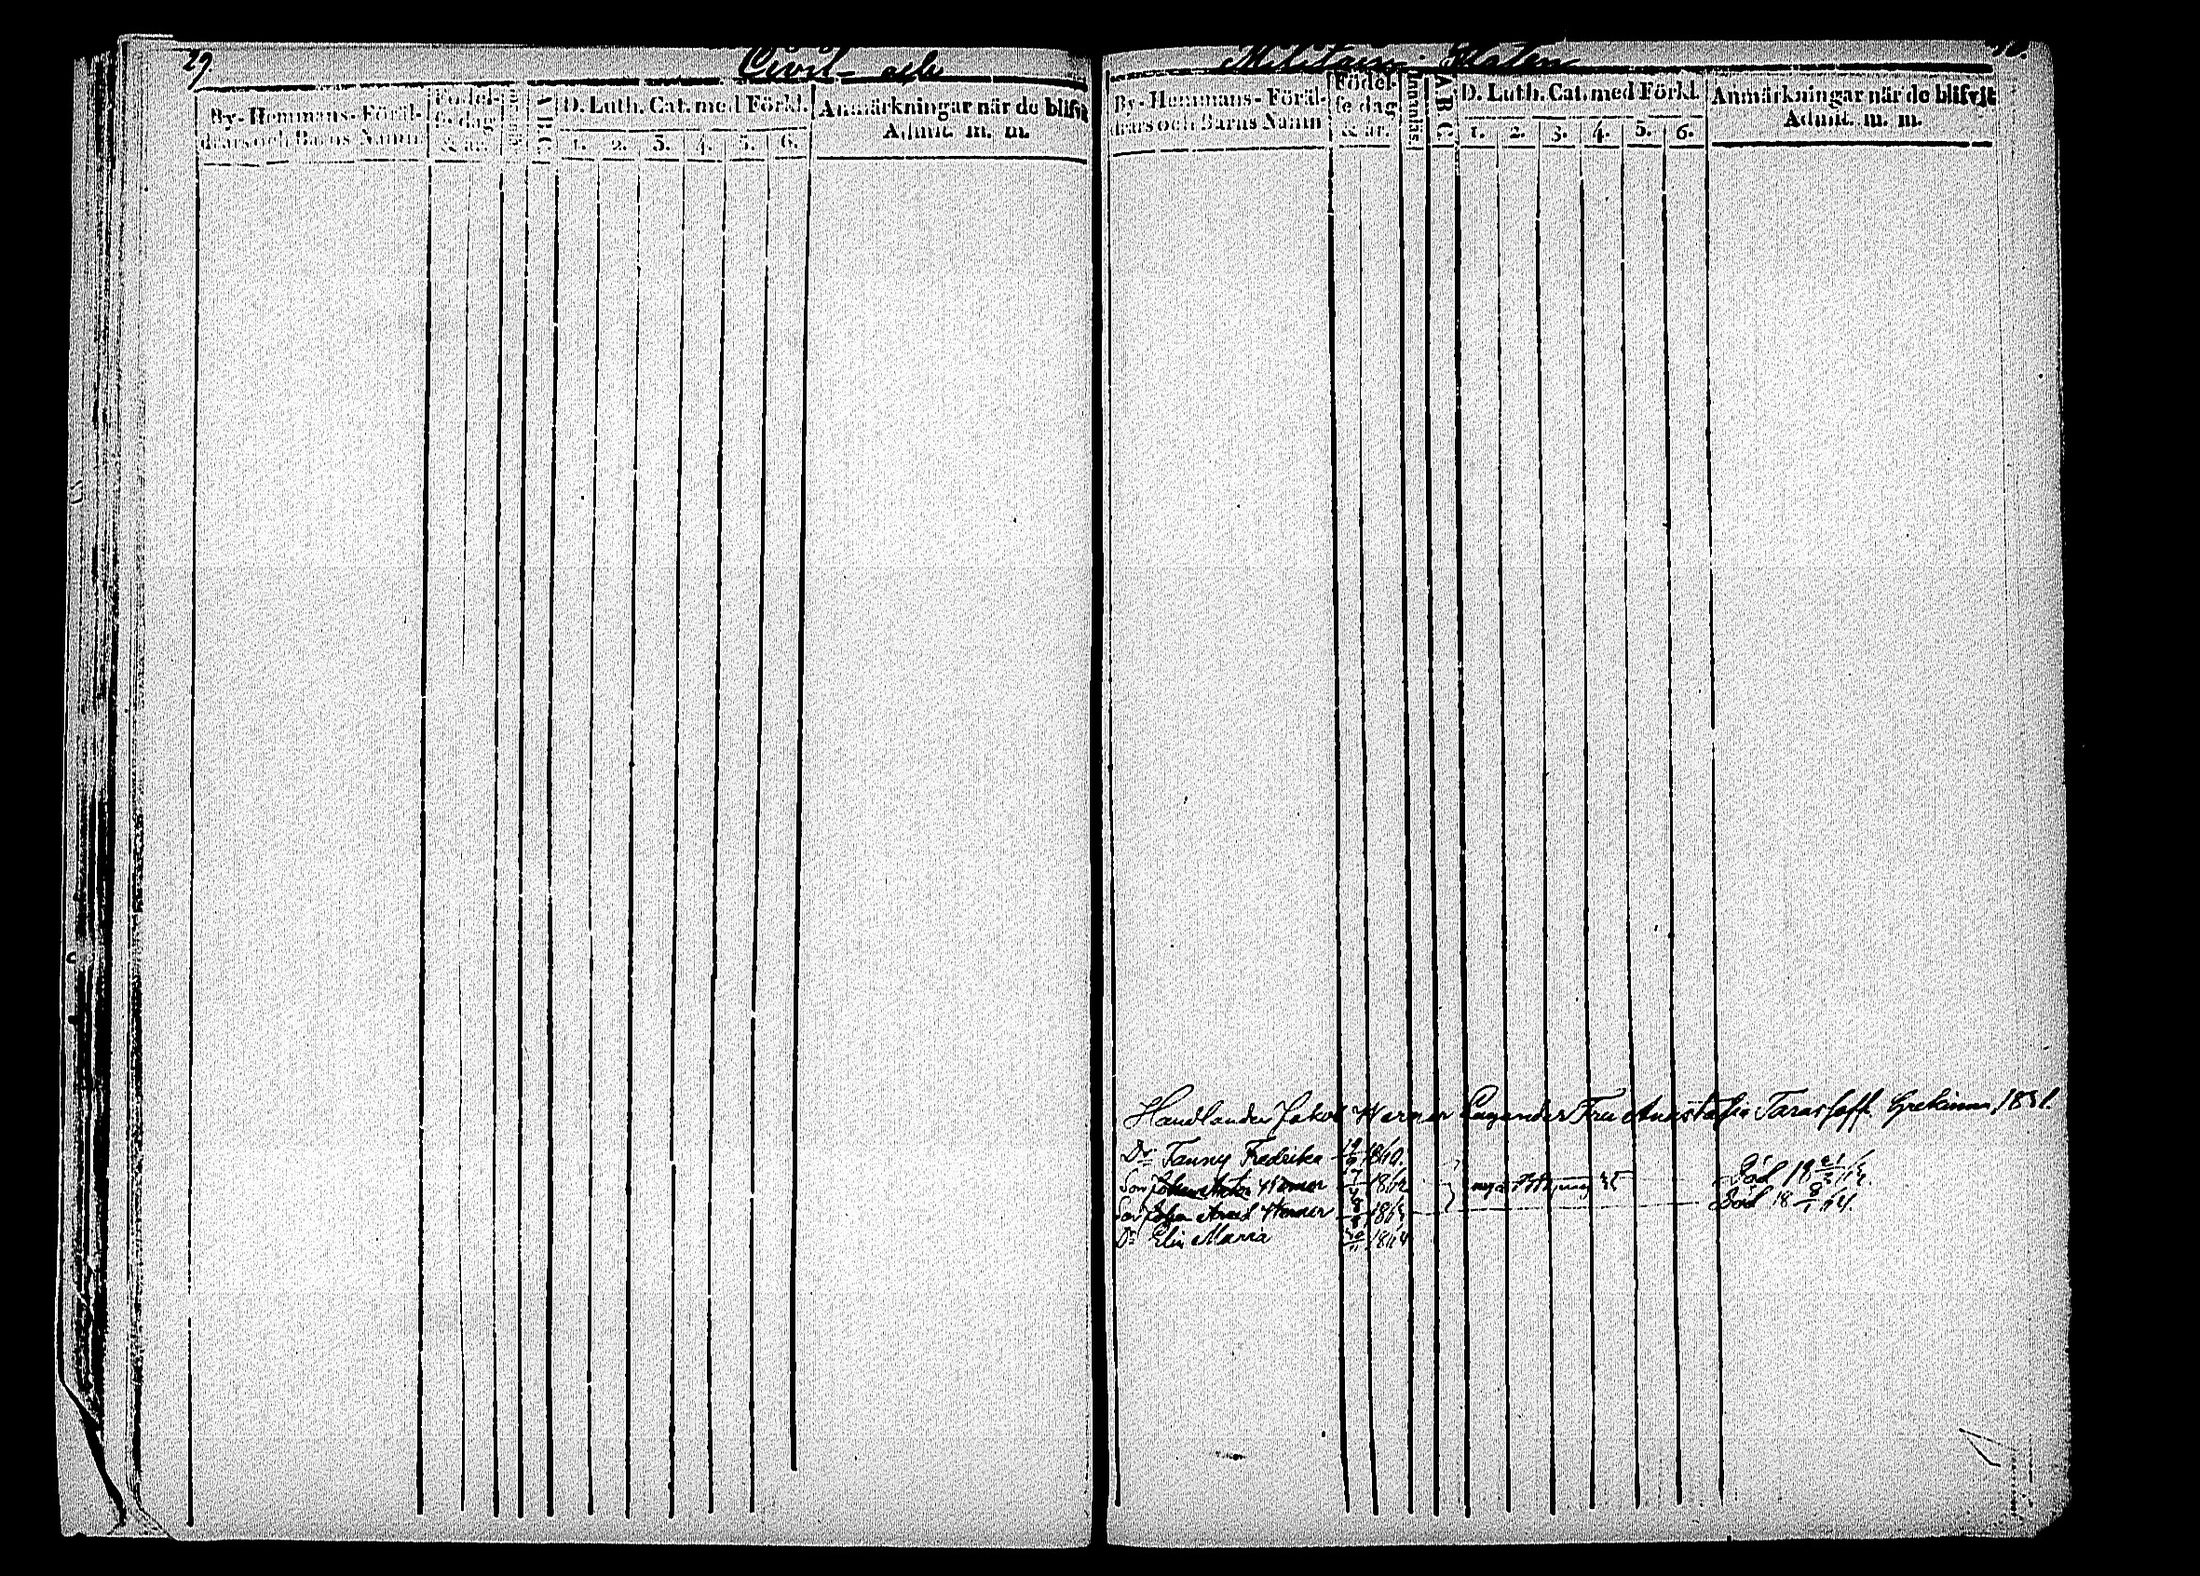 29.
Civil- och
By- Hemmans- Föräl-
drars och Barns Namn
Födel-
se dag
& år.
A B C
D. Luth. Cat. med Förkl.
1. 2. 3. 4. 5. 6.
Anmärkningar när de blifvit
Admit. m. m.
Militäire Staten
By- Hemmans- Föräl-
drars och Barns Namn
Födel-
se dag
& år.
A B C
D. Luth. Cat. med Förkl.
1. 2. 3. 4. 5. 6.
Anmärkningar när de blifvit
Admit. m. m.
Handlanden Jakob Werner Cajander Fru Anastasia Tarasoff. Grekinna, 1831.
Dr Fanny Fredrika 1860.
Son Werner 1862
Son Johan Arvid Werner 1863 Död 18 8/1 64.
Dr Elin Maria 1864